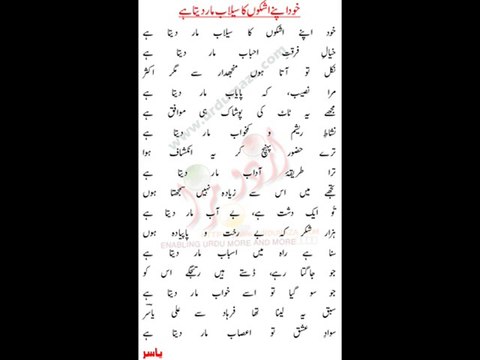 خود اپنے اشکوں کا سیلاب مار دیتا ہے
خود اپنے اشکوں کا سیلاب مار دیتا ہے
خیال فرقتِ احباب مار دیتا ہے
نکل تو آتا ہوں منجھدار سے مگر اکثر
مرا نصیب، کہ پایاب مار دیتا ہے
مجھے یہ ٹاٹ کی پوشاک ہی موافق ہے
نشاطِ ریشم و کمخواب مار دیتا ہے
ترے حضور پہنچ کر یہ انکشاف ہوا
ترا طریقۂ آداب مار دیتا ہے
تجھے میں اس سے زیادہ نہیں سمجھتا ہوں
تو ایک دشت ہے، بے آب مار دیتا ہے
ہزار شکر کہ بے رخت و پاپیادہ ہوں
سنا ہے راہ میں اسباب مار دیتا ہے
جو جاگتا رہے، ڈستے ہیں رتجگے اس کو
جو سو گیا تو اسے خواب مار دیتا ہے
سبق یہ لینا تھا فرہاد سے علی یاسرؔ
سوادِ عشق تو اعصاب مار دیتا ہے
یاسر
ENABLING URDU MORE AND MORE